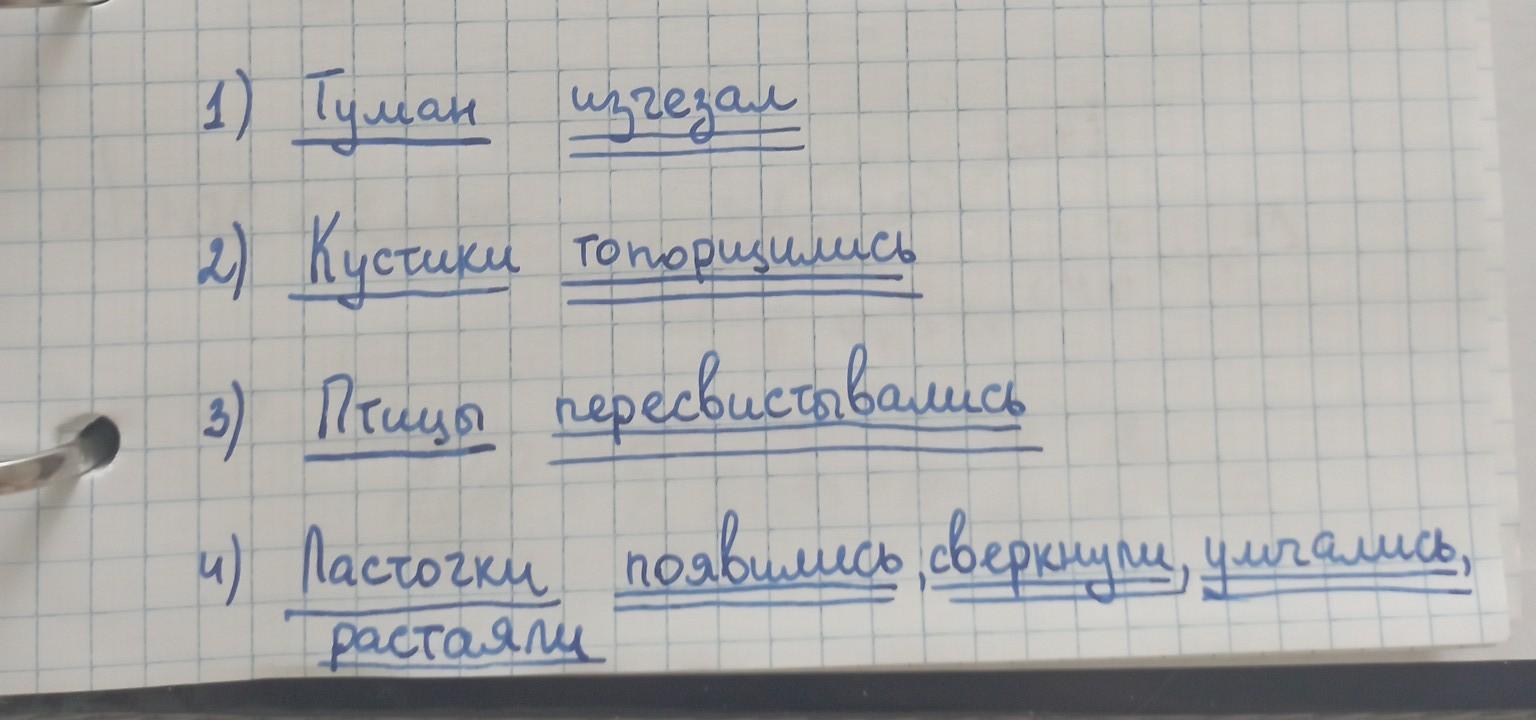 1) Туман изчезал
2) Кустики топорщились
3) Птицы пересвистывались
4) Ласточки появились, сверкнули, умчались,
растаяли